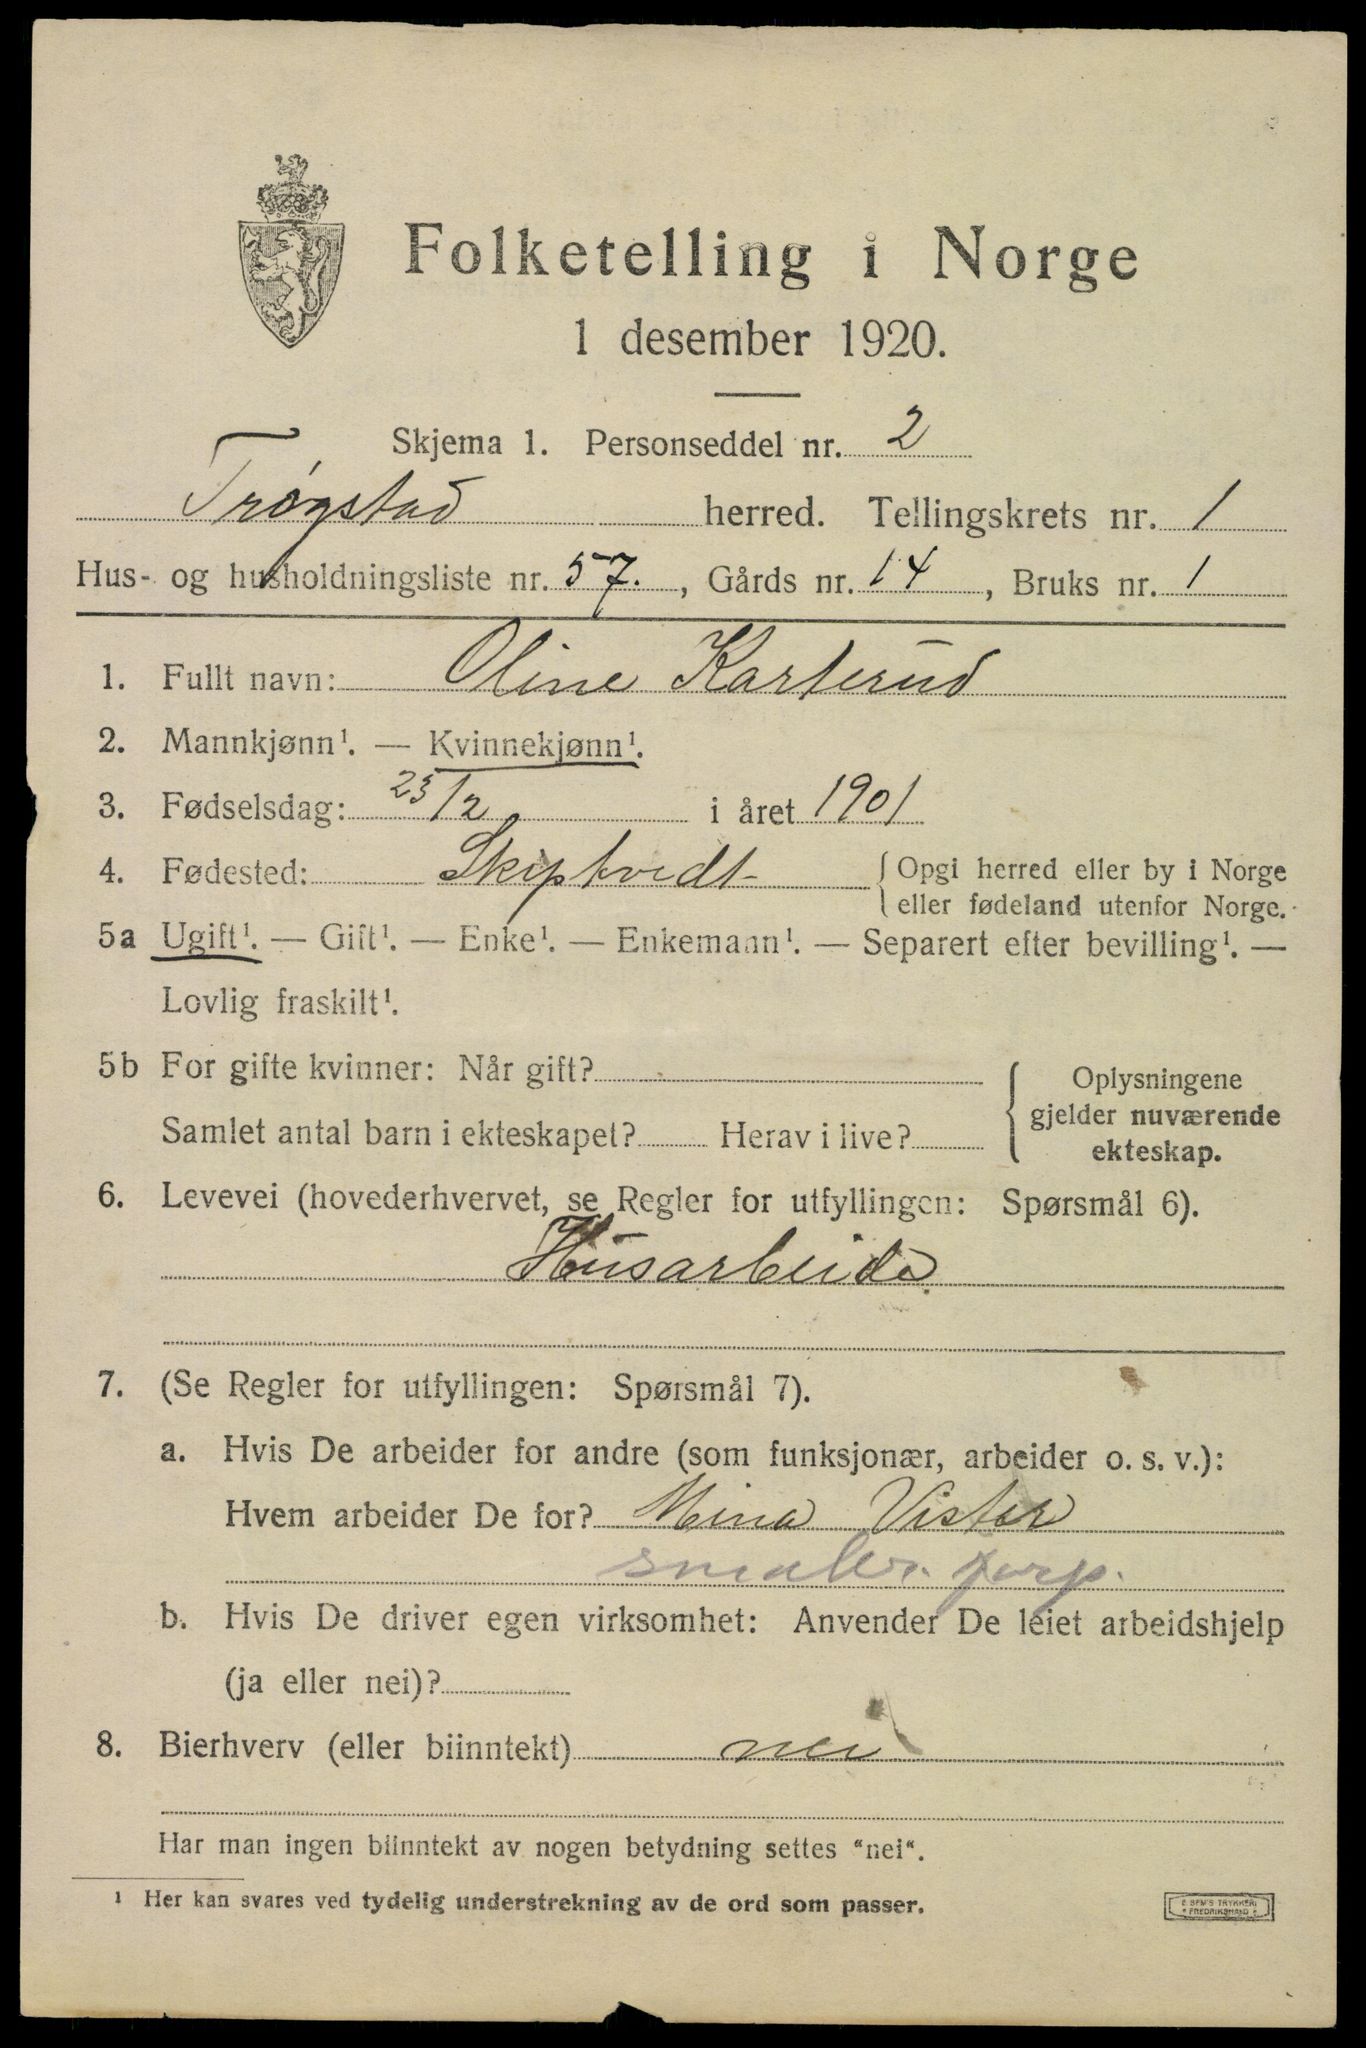 Folketelling i Norge
1 desember 1920.
Skjema 1. Personseddel nr. 2
Trøgstad herred. Tellingskrets nr. 1
Hus- og husholdningsliste nr. 57. , Gårds nr. 14 , Bruks nr. 1
1. Fullt navn: Oline Karterud
2. Mannkjønn¹. — Kvinnekjønn¹.
3. Fødselsdag: 23/2 i året 1901
4. Fødested: Skiptvedt { Opgi herred eller by i Norge
eller fødeland utenfor Norge.
5a Ugift¹. — Gift¹. — Enke¹. — Enkemann¹. — Separert efter bevilling¹. —
Lovlig fraskilt¹.
5b For gifte kvinner: Når gift?
Samlet antal barn i ekteskapet? Herav i live?
Oplysningene
gjelder nuværende
ekteskap.
6. Levevei (hovederhvervet, se Regler for utfyllingen: Spørsmål 6).
Husarbeide
7. (Se Regler for utfyllingen: Spørsmål 7).
a. Hvis De arbeider for andre (som funksjonær, arbeider o. s. v.):
Hvem arbeider De for? Mina Vister
b. Hvis De driver egen virksomhet: Anvender De leiet arbeidshjelp
(ja eller nei)?
8. Bierhverv (eller biinntekt) nei
Har man ingen biinntekt av nogen betydning settes "nei".
¹ Her kan svares ved tydelig understrekning av de ord som passer.
E SEM'S TRYKKERI
FREDRIKSHALD